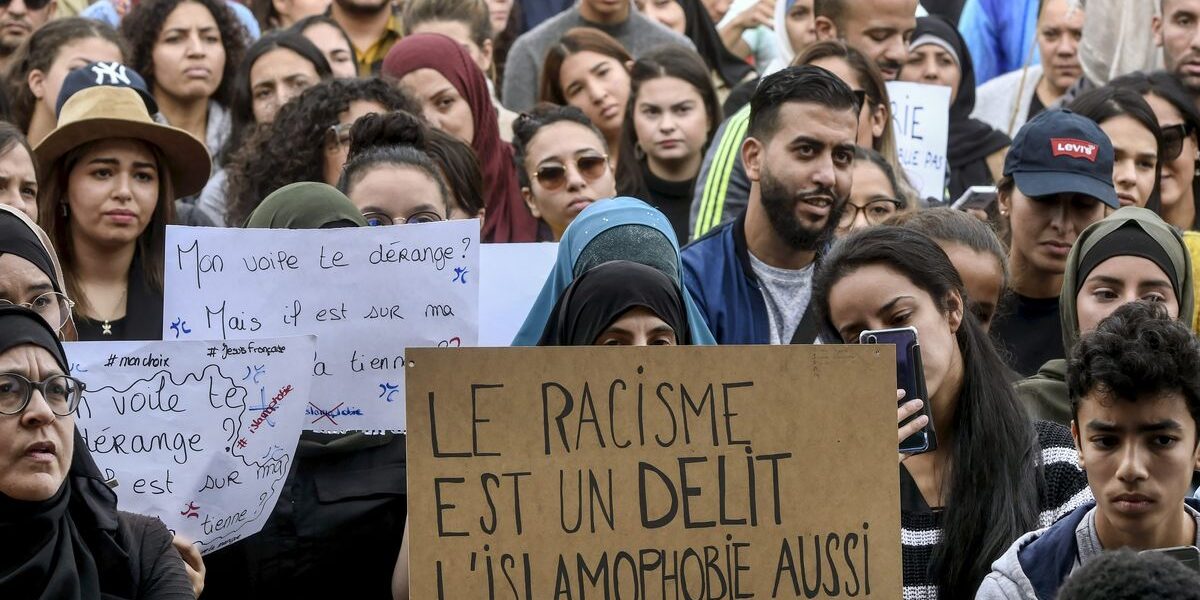 NY
Levi's
RIE
que pas
Mon voile te dérange?
Mais il est sur ma
tienne?
#monchoix
#Jesuisfrançaise
voile te
dérange?
#islamophobie
est sur ma
tienne?
LE RACISME
EST UN DELIT
L'ISLAMOPHOBIE AUSSI